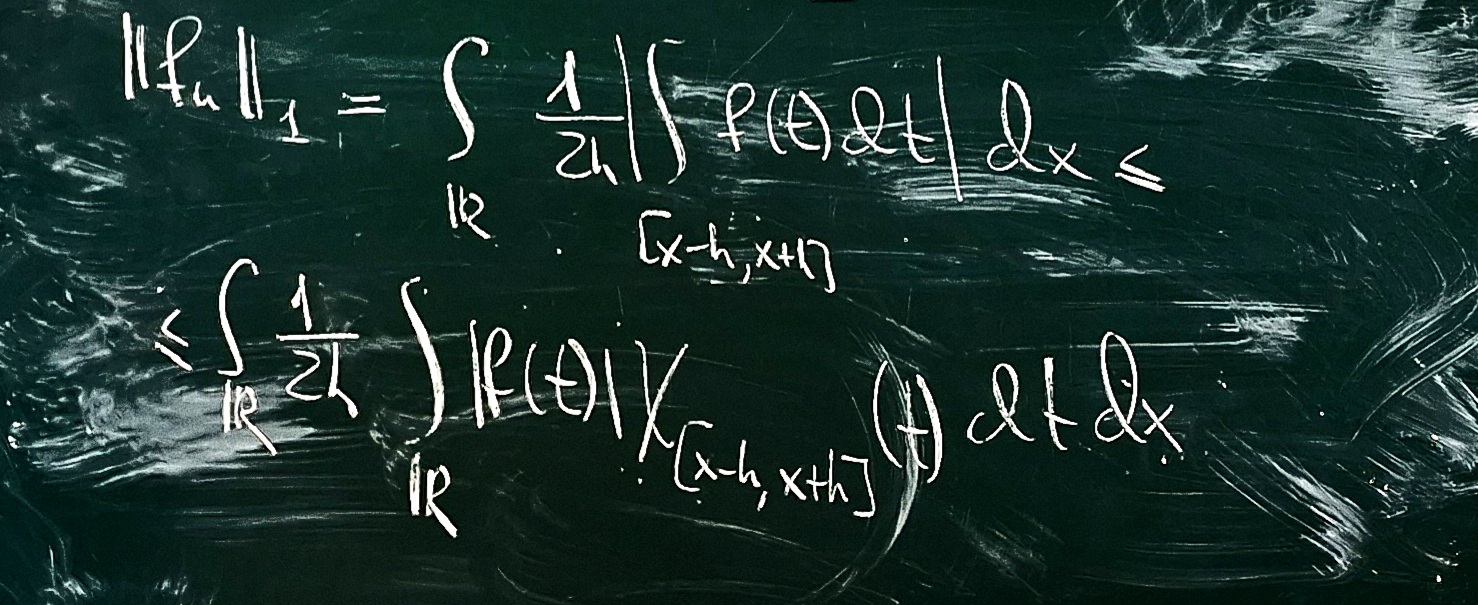 ‖fₕ‖₁ = ∫_ℝ 1/2h |∫_[x-h, x+h] f(t) dt| dx ≤
≤ ∫_ℝ 1/2h ∫_ℝ |f(t)| χ_[x-h, x+h] (t) dt dx